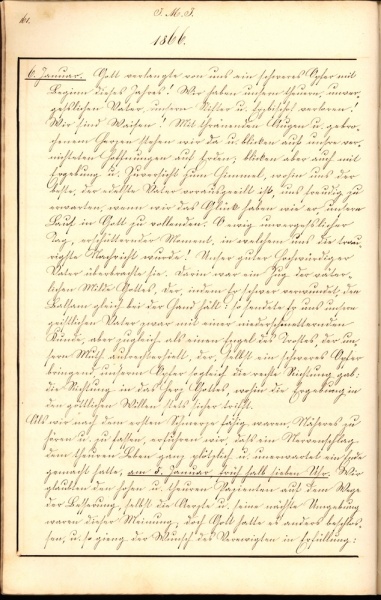 161.
J. M. J.
1866.
6. Januar. Gott verlangte von uns ein schweres Opfer mit
Beginn dieses Jahres! Wir haben unsern theuern, unver-
geßlichen Vater, unsern Stifter u. Erzbischof verloren!
Wir sind Waisen! Mit thränenden Augen u. gebro-
chenem Herzen stehen wir da u. blicken auf unsre ver-
nichteten Hoffnungen auf Erden, blicken aber auch mit
Ergebung u. Zuversicht zum Himmel, wohin uns der
beste, der edelste Vater vorausgeeilt ist, uns freudig zu
erwarten, wenn wir das Glück haben wie er unsern
Lauf in Gott zu vollenden. Ewig unvergeßlicher
Tag, erschütternder Moment, in welchem uns die trau-
rigste Nachricht wurde! Unser guter Hochwürdiger
Vater überbrachte sie. Darin war ein Zug der väter-
lichen Milde Gottes, der, indem er schwer verwundet, den
Balsam gleich bei der Hand hält: so sendete er uns unsern
geistlichen Vater zwar mit einer niederschmetternden
Kunde, aber zugleich als einen Engel des Trostes, der un-
sern Muth aufrechterhielt, der, selbst ein schweres Opfer
bringend, unserm Opfer sogleich die rechte Richtung gab:
die Richtung in das Herz Gottes, wohin die Ergebung in
den göttlichen Willen stets sicher trifft.
Als wir nach dem ersten Schmerze fähig waren, Näheres zu
hören u. zu fassen, erfuhren wir, daß ein Nervenschlag
dem theuren Leben ganz plötzlich u. unerwartet ein Ende
gemacht hatte, am 5. Januar früh halb sieben Uhr. Wir
glaubten den hohen u. theuren Patienten auf dem Wege
der Besserung, selbst die Aerzte u. seine nächste Umgebung
waren dieser Meinung; doch Gott hatte es anders beschlos-
sen, u. so gieng der Wunsch des Verewigten in Erfüllung: